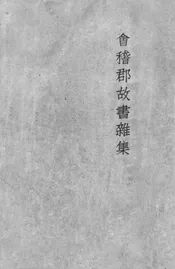 會稽郡故書雜集